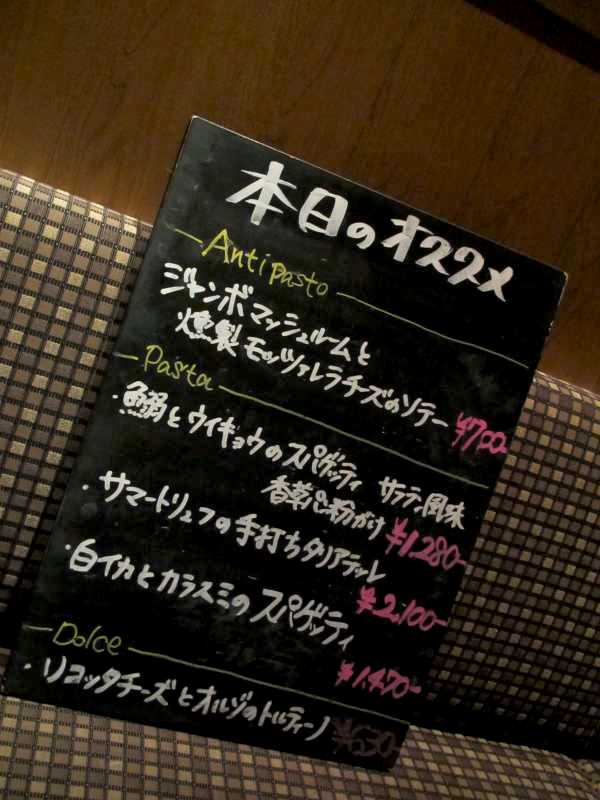 本日のオススメ
Antipasto
ジャンボマッシュルームと
燻製モッツァレラチーズのソテー ¥700-
Pasta
・鰯とウイキョウのスパゲッティ サフラン風味
香草パン粉がけ ¥1,280-
・サマートリュフの手打ちタリアテッレ
¥2,100-
・白イカとカラスミのスパゲッティ
¥1,470-
Dolce
・リコッタチーズとオルゾのトルティーノ ¥630-